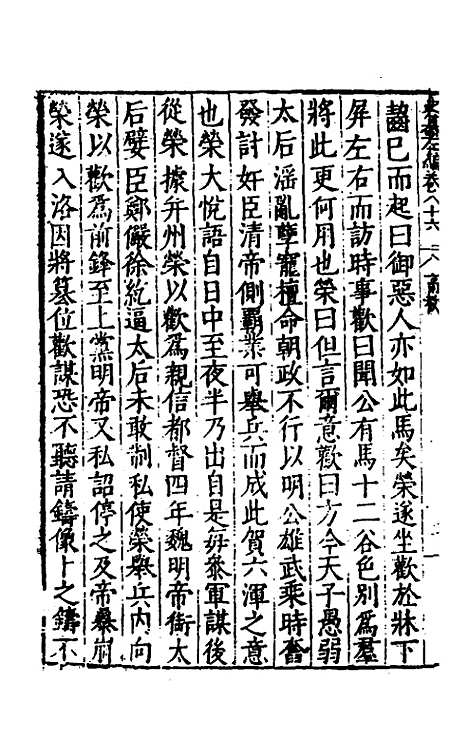 齧已而起曰御惡人亦如此馬矣榮遂坐歡於牀下
屏左右而訪時事歡曰聞公有馬十二谷色別爲羣
將此更何用也榮曰但言爾意歡曰方今天子愚弱
太后淫亂孽寵擅命朝政不行以明公雄武乘時奮
發討奸臣清帝側霸業可舉兵而成此賀六渾之意
也榮大悅語自日中至夜半乃出自是每參軍謀後
從榮據并州榮以歡爲親信都督四年魏明帝銜太
后嬖臣鄭儼徐紇逼太后未敢制私使榮舉兵内向
榮以歡爲前鋒至上黨明帝又私詔停之及帝暴崩
榮遂入洛因將墓位歡謀恐不聽請鑄像卜之鑄不
卷八十六